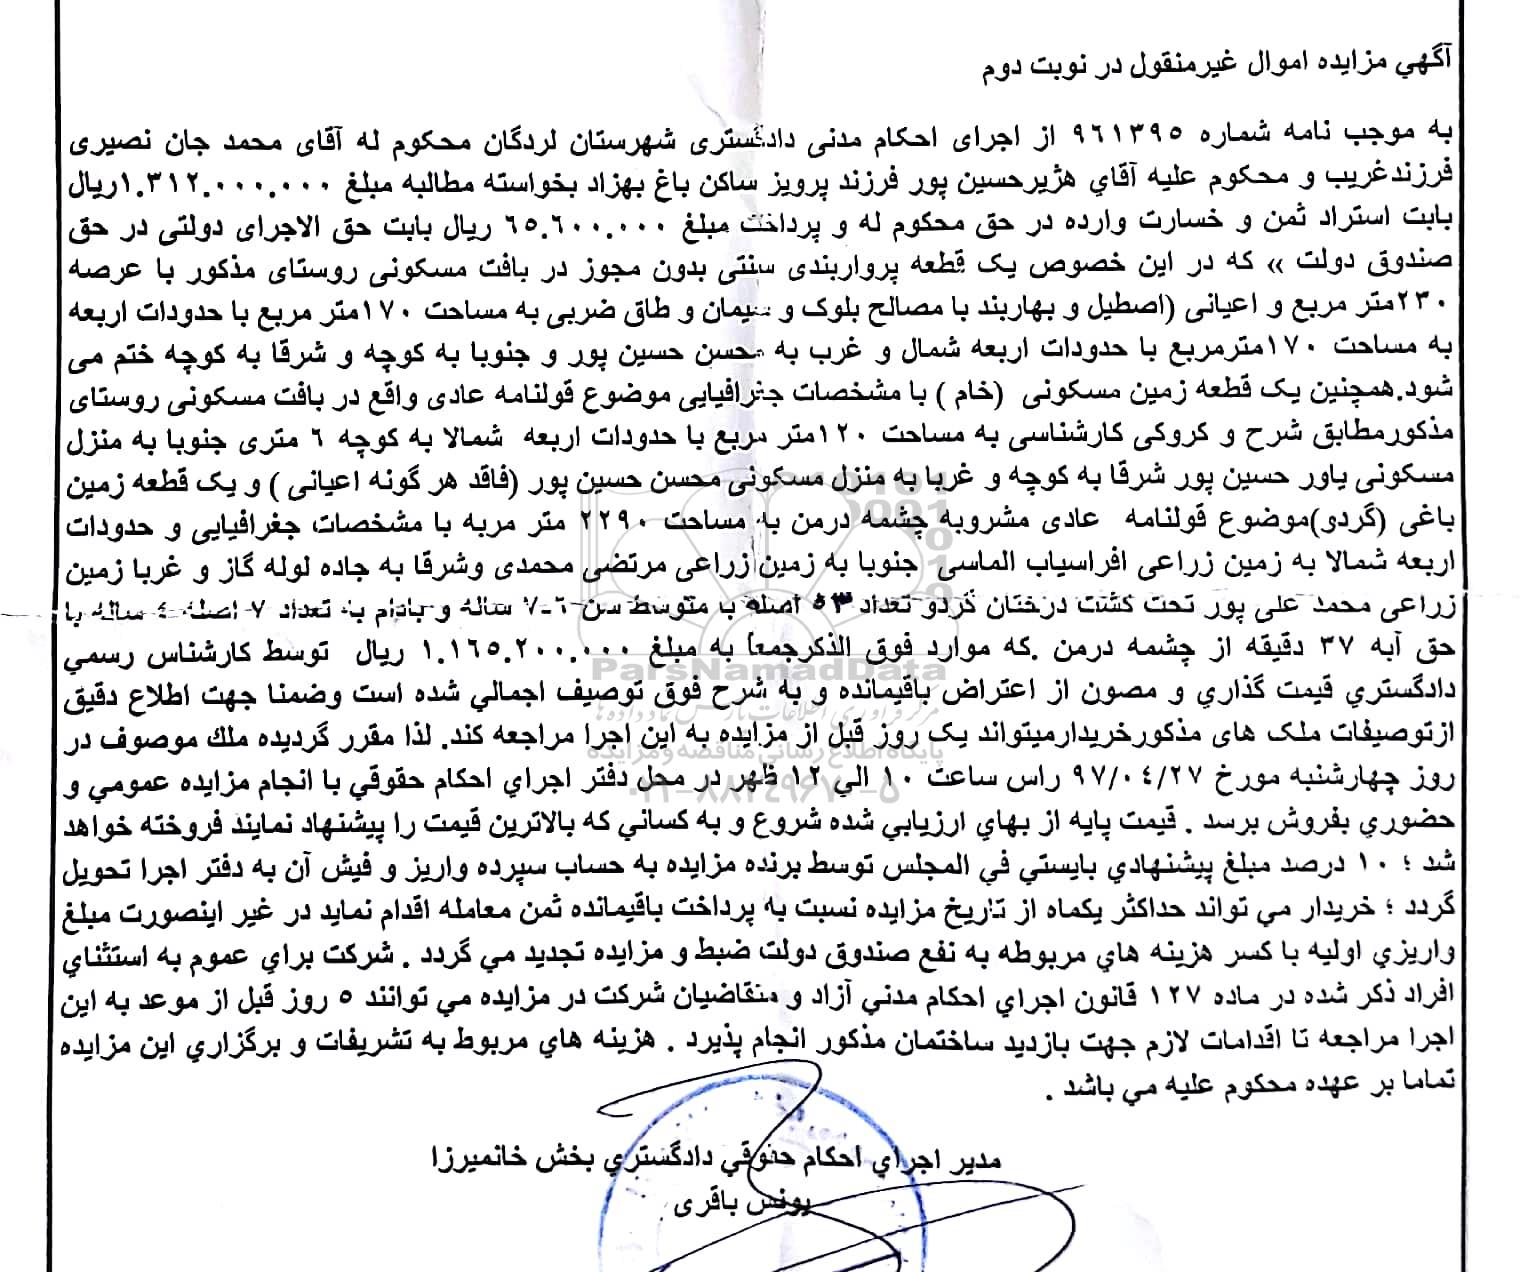 آگهي مزايده اموال غيرمنقول در نوبت دوم
به موجب نامه شماره ٩٦١٣٩٥ از اجرای احکام مدنی دادگستری شهرستان لردگان محکوم له آقای محمد جان نصیری
فرزندغریب و محکوم علیه آقاي هژیرحسین پور فرزند پرویز ساکن باغ بهزاد بخواسته مطالبه مبلغ ١.٣١٢.٠٠٠.٠٠٠ریال
بابت استراد ثمن و خسارت وارده در حق محکوم له و پرداخت مبلغ ٦٥.٦٠٠.٠٠٠ ریال بابت حق الاجرای دولتی در حق
صندوق دولت » که در این خصوص یک قطعه پرواربندی سنتی بدون مجوز در بافت مسکونی روستای مذکور با عرصه
٢٣٠متر مربع و اعیانی (اصطبل و بهاربند با مصالح بلوک و سیمان و طاق ضربی به مساحت ١٧٠متر مربع با حدودات اربعه
به مساحت ١٧٠مترمربع با حدودات اربعه شمال و غرب به محسن حسین پور و جنوبا به کوچه و شرقا به کوچه ختم می
شود.همچنین یک قطعه زمین مسکونی (خام ) با مشخصات جغرافیایی موضوع قولنامه عادی واقع در بافت مسکونی روستای
مذکورمطابق شرح و کروکی کارشناسی به مساحت ١٢٠متر مربع با حدودات اربعه شمالا به کوچه ٦ متری جنوبا به منزل
مسکونی یاور حسین پور شرقا به کوچه و غربا به منزل مسکونی محسن حسین پور (فاقد هر گونه اعیانی ) و یک قطعه زمین
باغی (گردو)موضوع قولنامه عادی مشروبه چشمه درمن به مساحت ٢٢٩٠ متر مربه با مشخصات جغرافیایی و حدودات
اربعه شمالا به زمین زراعی افراسیاب الماسی جنوبا به زمین زراعی مرتضی محمدی وشرقا به جاده لوله گاز و غربا زمین
زراعی محمد علی پور تحت کشت درختان گردو تعداد ٥٣ اصله با متوسط سن ٦-٧ ساله و بادام به تعداد ٧ اصله ٤ ساله با
حق آبه ٣٧ دقیقه از چشمه درمن .که موارد فوق الذکرجمعا به مبلغ ١.١٦٥.٢٠٠.٠٠٠ ریال توسط کارشناس رسمي
دادگستري قیمت گذاري و مصون از اعتراض باقیمانده و به شرح فوق توصیف اجمالي شده است وضمنا جهت اطلاع دقیق
ازتوصیفات ملک های مذکورخریدارمیتواند یک روز قبل از مزایده به این اجرا مراجعه کند. لذا مقرر گردیده ملك موصوف در
روز چهارشنبه مورخ ٩٧/٠٤/٢٧ راس ساعت ١٠ الي ١٢ ظهر در محل دفتر اجراي احکام حقوقي با انجام مزایده عمومي و
حضوري بفروش برسد . قیمت پایه از بهاي ارزیابي شده شروع و به کساني که بالاترین قیمت را پیشنهاد نمایند فروخته خواهد
شد ؛ ١٠ درصد مبلغ پیشنهادي بایستي في المجلس توسط برنده مزایده به حساب سپرده واریز و فیش آن به دفتر اجرا تحویل
گردد ؛ خریدار مي تواند حداکثر یکماه از تاریخ مزایده نسبت به پرداخت باقیمانده ثمن معامله اقدام نماید در غیر اینصورت مبلغ
واریزي اولیه با کسر هزینه هاي مربوطه به نفع صندوق دولت ضبط و مزایده تجدید مي گردد . شرکت براي عموم به استثناي
افراد ذکر شده در ماده ١٢٧ قانون اجراي احکام مدني آزاد و متقاضیان شرکت در مزایده مي توانند ٥ روز قبل از موعد به این
اجرا مراجعه تا اقدامات لازم جهت بازدید ساختمان مذکور انجام پذیرد . هزینه هاي مربوط به تشریفات و برگزاري این مزایده
تماما بر عهده محکوم علیه مي باشد .
مدیر اجراي احکام حقوقي دادگستري بخش خانمیرزا
یونس باقری
ParsNamadData
مرکز فرآوری اطلاعات پارس نماد داده ها
پایگاه اطلاع رسانی مناقصه و مزایده
۰۲۱-۸۸۳۴۹۶۷۰-۵